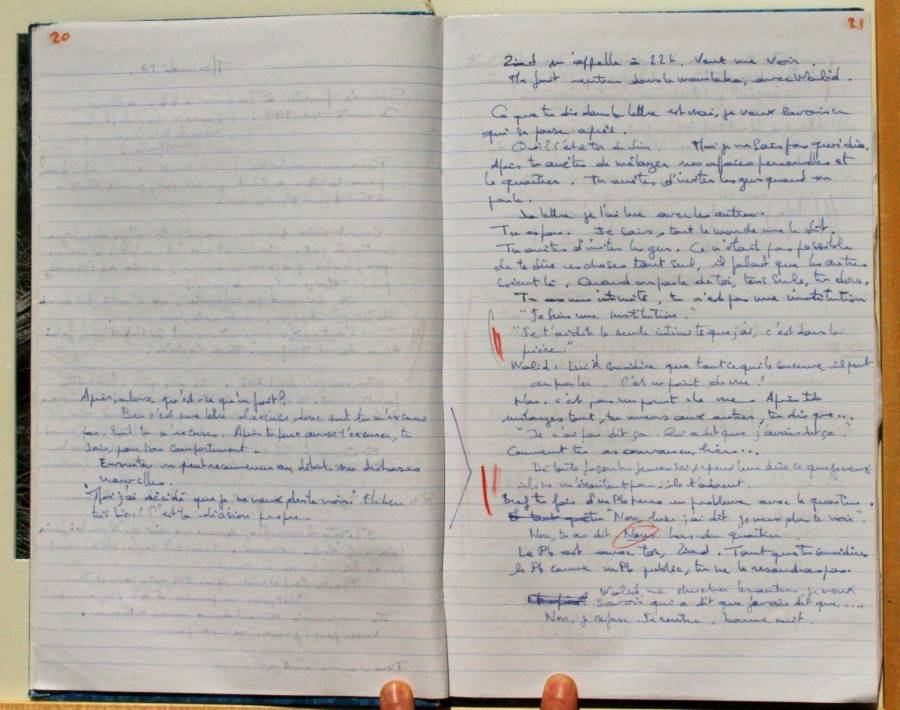 20
Après, alors qu'est-ce qu'on fait?
Ben c'est une lettre d'excuse, donc soit tu m'excuses
pas, soit tu m'excuses. Après tu peux aussi t'excuser, tu
sais, pour ton comportement.
Ensuite, on peut recommencer au début sur des bases
nouvelles.
"Moi j'ai décidé que je ne veux plus te voir." Eh ben
très bien! C'est ta décision propre.
21
Ziad m'appelle à 22h. Veut me voir.
Me fait rentrer dans le, avec Walid.
Ce que tu dis dans la lettre est vrai, je veux savoir ce
qui se passe après.
C'est à toi de dire. Moi je ne sais pas quoi dire.
Après tu arrêtes de mélanger nos affaires personnelles et
le quartier. Tu arrêtes d'inviter les gens quand on
parle.
La lettre je l'ai lue avec les autres.
Tu as peur. Je sais, tout le monde me le dit.
Tu arrêtes d'inviter les gens. Ce n'était pas possible
de te dire ces choses tout seul, il fallait que les autres
soient là. Quand on parle de toi, tous seuls, tu dors.
Tu as une intimité, tu n'es pas une institution
"Je suis une institution."
"Je t'ai dit la seule intimité que j'ai, c'est dans la
prière."
Walid: Lui il considère que tout ce qui le concerne, il peut
en parler. C'est un point de vue!
Non, c'est pas un point de vue. Après tu
mélanges tout, tu viens aux autres, tu dis que...
"Je n'ai pas dit ça. Qui a dit que j'avais dit ça."
Comment tu as convaincu, hier...
De toute façon les jeunes ici, je peux leur dire ce que je veux
ils ne m'écoutent pas. ils t'adorent.
Bref tu fais d'un Pb perso un problème avec le quartier.
"Non, hier j'ai dit je veux plus te voir".
Non, tu as dit Nous hors du quartier.
Le Pb est avec toi, Ziad. Tant que tu considères
le Pb comme un Pb public, tu ne le résoudras pas.
Walid, va chercher les autres, je veux
savoir qui a dit que j'avais dit que....
Non, je refuse. Je rentre, bonne nuit.